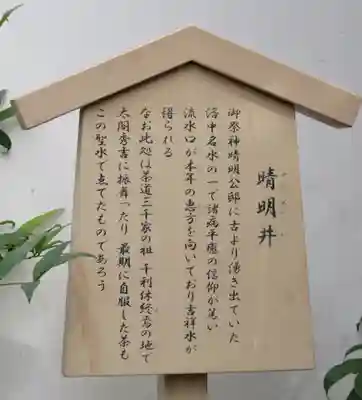 晴明井
御祭神晴明公邸に古より湧き出ていた
洛中名水の一で諸病平癒の信仰が篤い
流水口が本年の恵方を向いており吉祥水が
得られる
なお此処は茶道三千家の祖 千利休終焉の地で
太閤秀吉に振舞ったり 最期に自服した茶も
この聖水で点てたものであろう